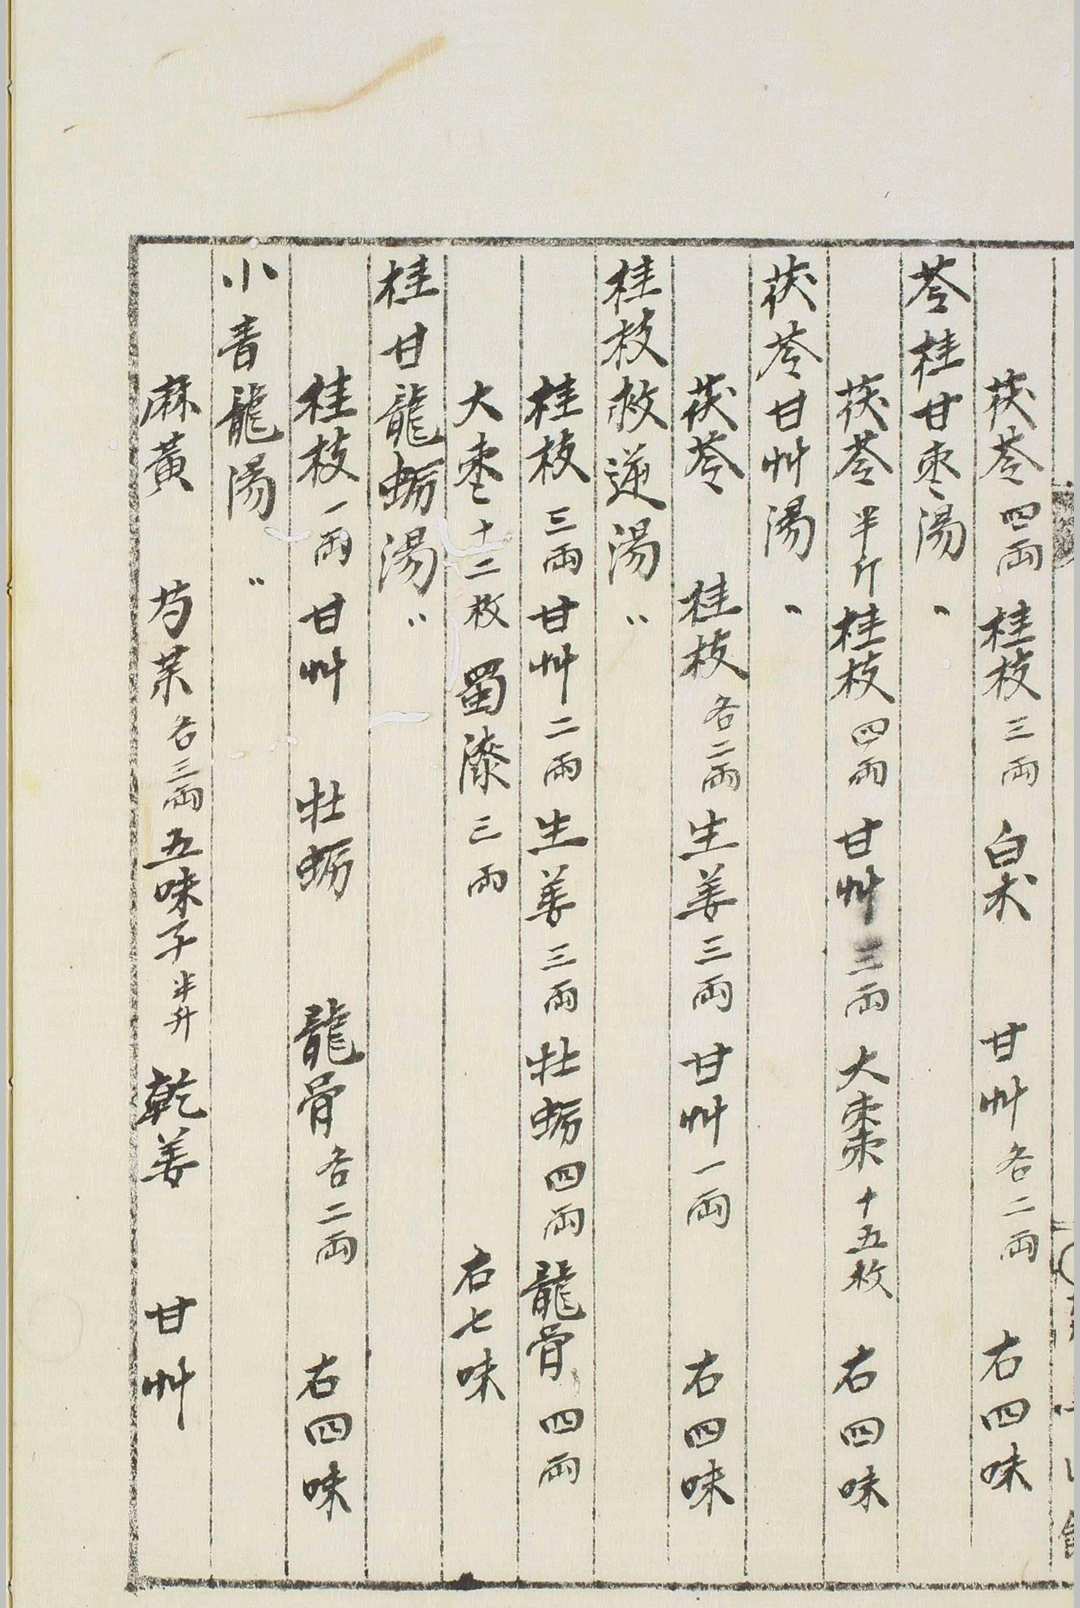 茯苓四両 桂枝三両 白朮 甘艸各二両 右四味
苓桂甘枣湯〃
茯苓半斤 桂枝四両 甘艸三両 大棗十五枚 右四味
茯苓甘艸湯〃
茯苓 桂枝各二両 生姜三両 甘艸一両 右四味
桂枝救逆湯〃
桂枝三両 甘艸二両 生姜三両 牡蛎四両 龍骨四両
大枣十二枚 蜀漆三両 右七味
桂甘龍蛎湯〃
桂枝一両 甘艸 牡蛎 龍骨各二両 右四味
小青龍湯〃
麻黄 芍薬各三両 五味子半升 乾姜 甘艸